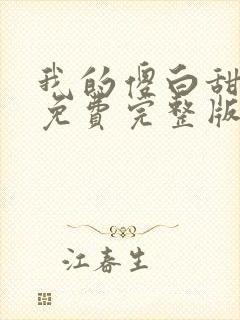 我的傻白甜
免费完整版
江春生